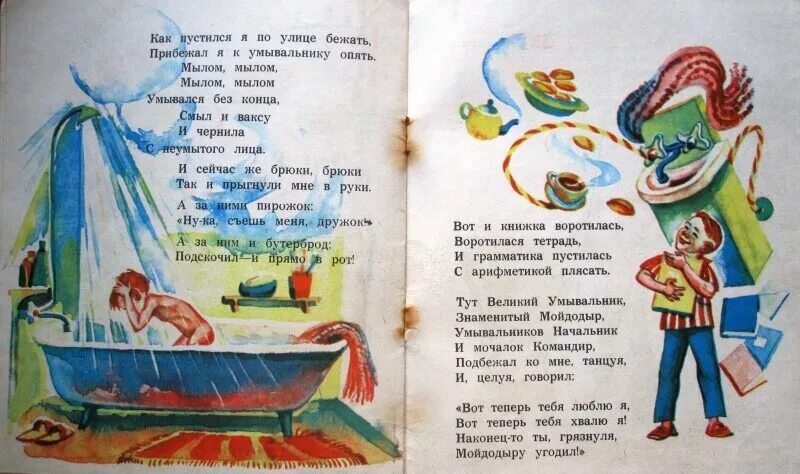 Как пустился я по улице бежать,
Прибежал я к умывальнику опять.
Мылом, мылом,
Мылом, мылом
Умывался без конца,
Смыл и ваксу
И чернила
С неумытого лица.
И сейчас же брюки, брюки
Так и прыгнули мне в руки.
А за ними пирожок:
«Ну-ка, съешь меня, дружок!»
А за ним и бутерброд:
Подскочил—и прямо в рот!
Вот и книжка воротилась,
Воротилася тетрадь,
И грамматика пустилась
С арифметикой плясать.
Тут Великий Умывальник,
Знаменитый Мойдодыр,
Умывальников Начальник
И мочалок Командир,
Подбежал ко мне, танцуя,
И, целуя, говорил:
«Вот теперь тебя люблю я,
Вот теперь тебя хвалю я!
Наконец-то ты, грязнуля,
Мойдодыру угодил!»